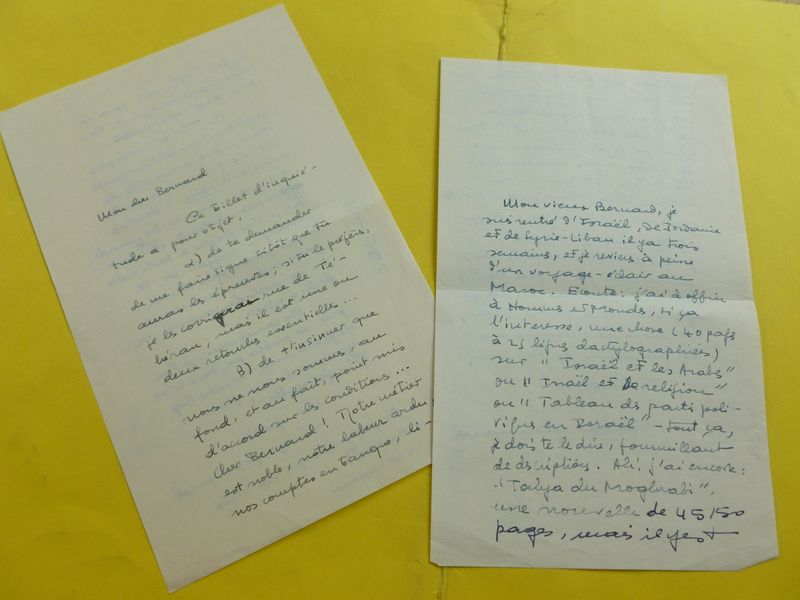 Mon cher Bernard
Ce billet d'inquié-
tude a pour objet,
α) de te demander
de me faire signe sitôt que tu
auras les épreuves; si tu le préfères,
je les corrigerai rue de Té-
héran, mais il est une ou
deux retouches essentielles...
β) de t'insinuer que
nous ne nous sommes, au
fond, et au fait, point mis
d'accord sur les conditions...
Cher Bernard! Notre métier
est noble, notre labeur ardu,
nos comptes en banque, li-
Mon vieux Bernard, je
suis rentré d'Israël, de Jordanie
et de Syrie-Liban il y a trois
semaines, et je reviens à peine
d'un voyage-éclair au
Maroc. Écoute: j'ai à offrir
à Hommes et Mondes, si ça
l'intéresse, une chose (40 pages
à 25 lignes dactylographiées)
sur "Israël et les Arabes"
ou "Israël et la religion"
ou "Tableau des partis poli-
tiques en Israël" - tout ça,
je dois te le dire, fourmillant
de descriptions. Ah! j'ai encore:
"Talya du Moghrabi",
une nouvelle de 45/50
pages, mais il y est